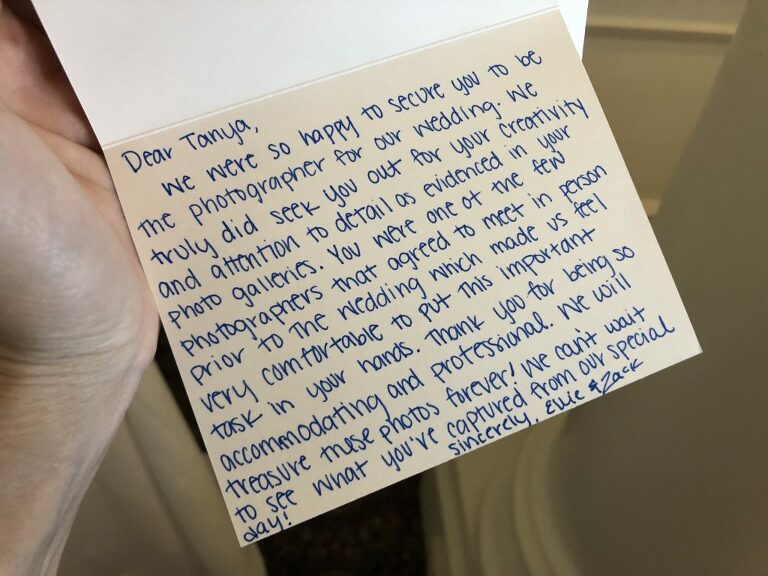 Dear Tanya,
We were so happy to secure you to be
the photographer for our wedding. We
truly did seek you out for your creativity
and attention to detail as evidenced in your
photo galleries. You were one of the few
photographers that agreed to meet in person
prior to the wedding which made us feel
very comfortable to put this important
task in your hands. Thank you for being so
accommodating and professional. We will
treasure these photos forever! We can't wait
to see what you've captured from our special
day!
Sincerely, Evie & Zack